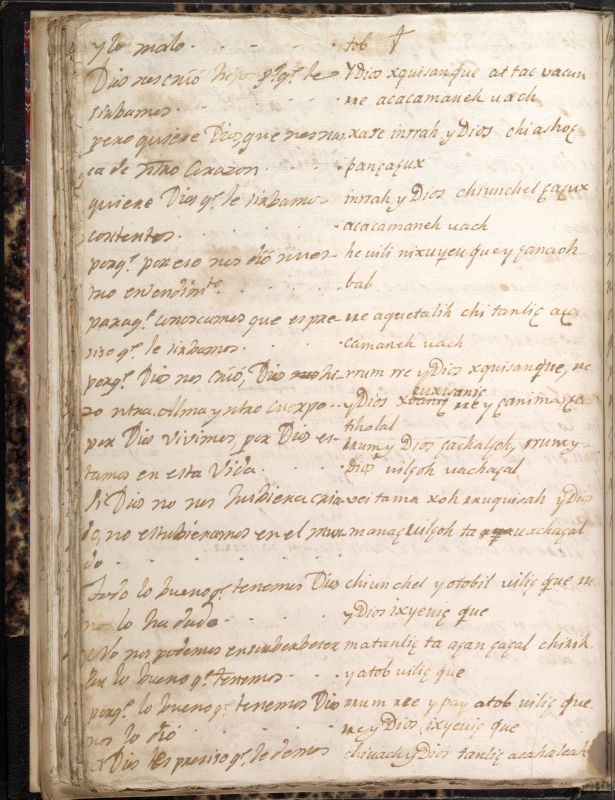 y lo malo. tob
Dios nos crió hijo pa. q. le ydios xquisanque at tac vacun
sirbamos. re acacamaneh uach
pero quiere Dios que nos nas xare inrrah ydios chi achoc
ca de ntro Corazon. pançaçux
quiere Dios q. le sirbamos inrrah ydios chiunchel çaçux
contentos. acacamaneh uach
porq. por eso nos dió nues he uili nixuyeu que y çanaoh
tro entendimto. bal
paraq. conoscamos que es pre re aquetalih chi tanliç aca
siso q. le sirbamos. camaneh uach
porq. Dios nos crió, Dios hi rrum re ydios xquisanque, re
zo ntra Alma y ntro cuerpo ydios re y çanimas ça
tiholal
por Dios vivimos, por Dios es rrum y Dios çachalçoh, rrum y
tamos en esta Vida. dios uilçoh uachaçal
Si Dios no nos hubiera cria vei tama xoh ruquisah y Dios
do, no estubieramos en el mun manaç uilçoh ta uachaçal
do
Todo lo bueno q. tenemos Dios chiunchel y otobil uiliç que re
nos lo ha dado. ydios ixyeuiç que
No nos podemos ensoberbeser matanliç ta açan çaçal chirih
por lo bueno q. tenemos. y atob uiliç que
porq. lo bueno q. tenemos Dios rrum re y pay atob uiliç que
nos lo dió re y Dios ixyeuiç que
A Dios es presiso q. le demos chiuach y Dios tanliç acahaleah